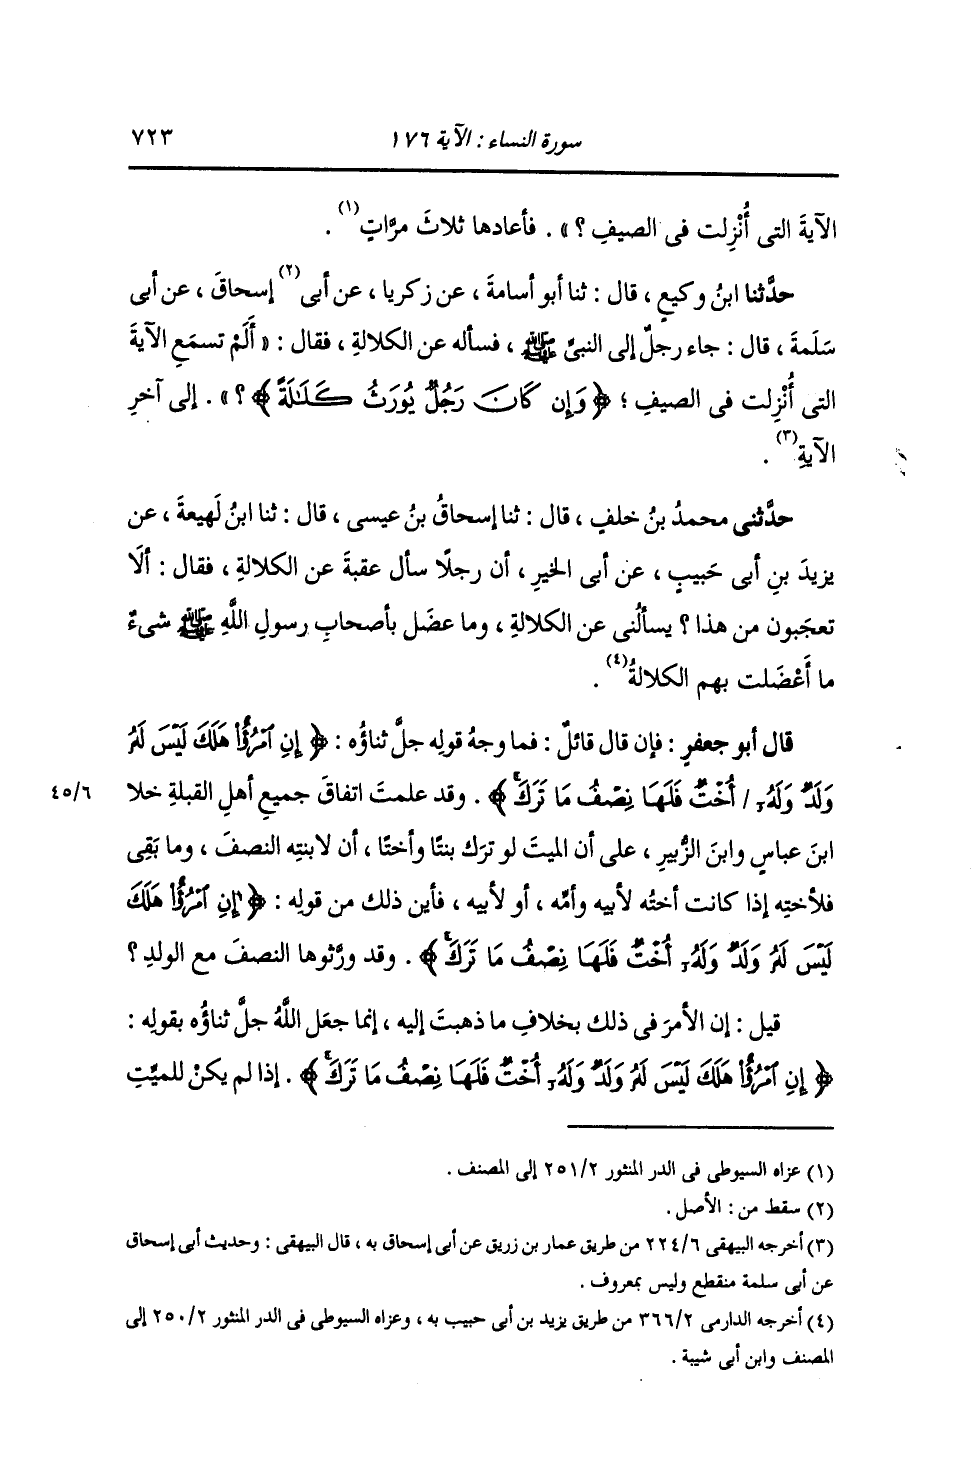 سورة النساء : الآية ١٧٦ ٧٢٣
الآيةَ التى أُنْزِلت فى الصيفِ ؟ » . فأعادها ثلاثَ مرَّاتٍ(١) .
حدَّثنا ابنُ وكيعٍ ، قال : ثنا أبو أسامةَ ، عن زكريا ، عن أبى(٢) إسحاقَ ، عن أبى
سَلَمةَ ، قال : جاء رجلٌ إلى النبىِّ ﷺ ، فسأله عن الكلالةِ ، فقال : « أَلَمْ تسمَعِ الآيةَ
التى أُنْزِلت فى الصيفِ ؛ ﴿ وَإِن كَانَ رَجُلٌ يُورَثُ كَلَٰلَةً ﴾ ؟ » . إلى آخرِ
الآيةِ(٣) .
حدَّثنى محمدُ بنُ خلفٍ ، قال : ثنا إسحاقُ بنُ عيسى ، قال : ثنا ابنُ لَهيعةَ ، عن
يزيدَ بنِ أبى حَبيبٍ ، عن أبى الخيرِ ، أن رجلًا سأل عقبةَ عن الكلالةِ ، فقال : ألَا
تعجَبون من هذا ؟ يسألُنى عن الكلالةِ ، وما عضَل بأصحابِ رسولِ اللَّهِ ﷺ شىءٌ
ما أَعْضَلت بهم الكلالةُ(٤) .
قال أبو جعفرٍ : فإن قال قائلٌ : فما وجهُ قولِه جلَّ ثناؤُه : ﴿ إِنِ ٱمْرُؤٌا۟ هَلَكَ لَيْسَ لَهُۥ
وَلَدٌ وَلَهُۥٓ / أُخْتٌ فَلَهَا نِصْفُ مَا تَرَكَۚ ﴾ . وقد علمتَ اتفاقَ جميعِ أهلِ القبلةِ خلا ٤٥/٦
ابنَ عباسٍ وابنَ الزُّبيرِ ، على أن الميتَ لو ترَك بنتًا وأختًا ، أن لابنتِه النصفَ ، وما بَقِى
فلأختِه إذا كانت أختُه لأبيه وأمِّه ، أو لأبيه ، فأين ذلك من قولِه : ﴿ إِنِ ٱمْرُؤٌا۟ هَلَكَ
لَيْسَ لَهُۥ وَلَدٌ وَلَهُۥٓ أُخْتٌ فَلَهَا نِصْفُ مَا تَرَكَۚ ﴾ . وقد ورَّثوها النصفَ مع الولدِ ؟
قيل : إن الأمرَ فى ذلك بخلافِ ما ذهبتَ إليه ، إنما جعَل اللَّهُ جلَّ ثناؤُه بقولِه :
﴿ إِنِ ٱمْرُؤٌا۟ هَلَكَ لَيْسَ لَهُۥ وَلَدٌ وَلَهُۥٓ أُخْتٌ فَلَهَا نِصْفُ مَا تَرَكَۚ ﴾ . إذا لم يكنْ للميِّتِ
(١) عزاه السيوطى فى الدر المنثور ٢٥١/٢ إلى المصنف .
(٢) سقط من : الأصل .
(٣) أخرجه البيهقى ٢٢٤/٦ من طريق عمار بن زريق عن أبى إسحاق به ، قال البيهقى : وحديث أبى إسحاق
عن أبى سلمة منقطع وليس بمعروف .
(٤) أخرجه الدارمى ٣٦٦/٢ من طريق يزيد بن أبى حبيب به ، وعزاه السيوطى فى الدر المنثور ٢٥٠/٢ إلى
المصنف وابن أبى شيبة .